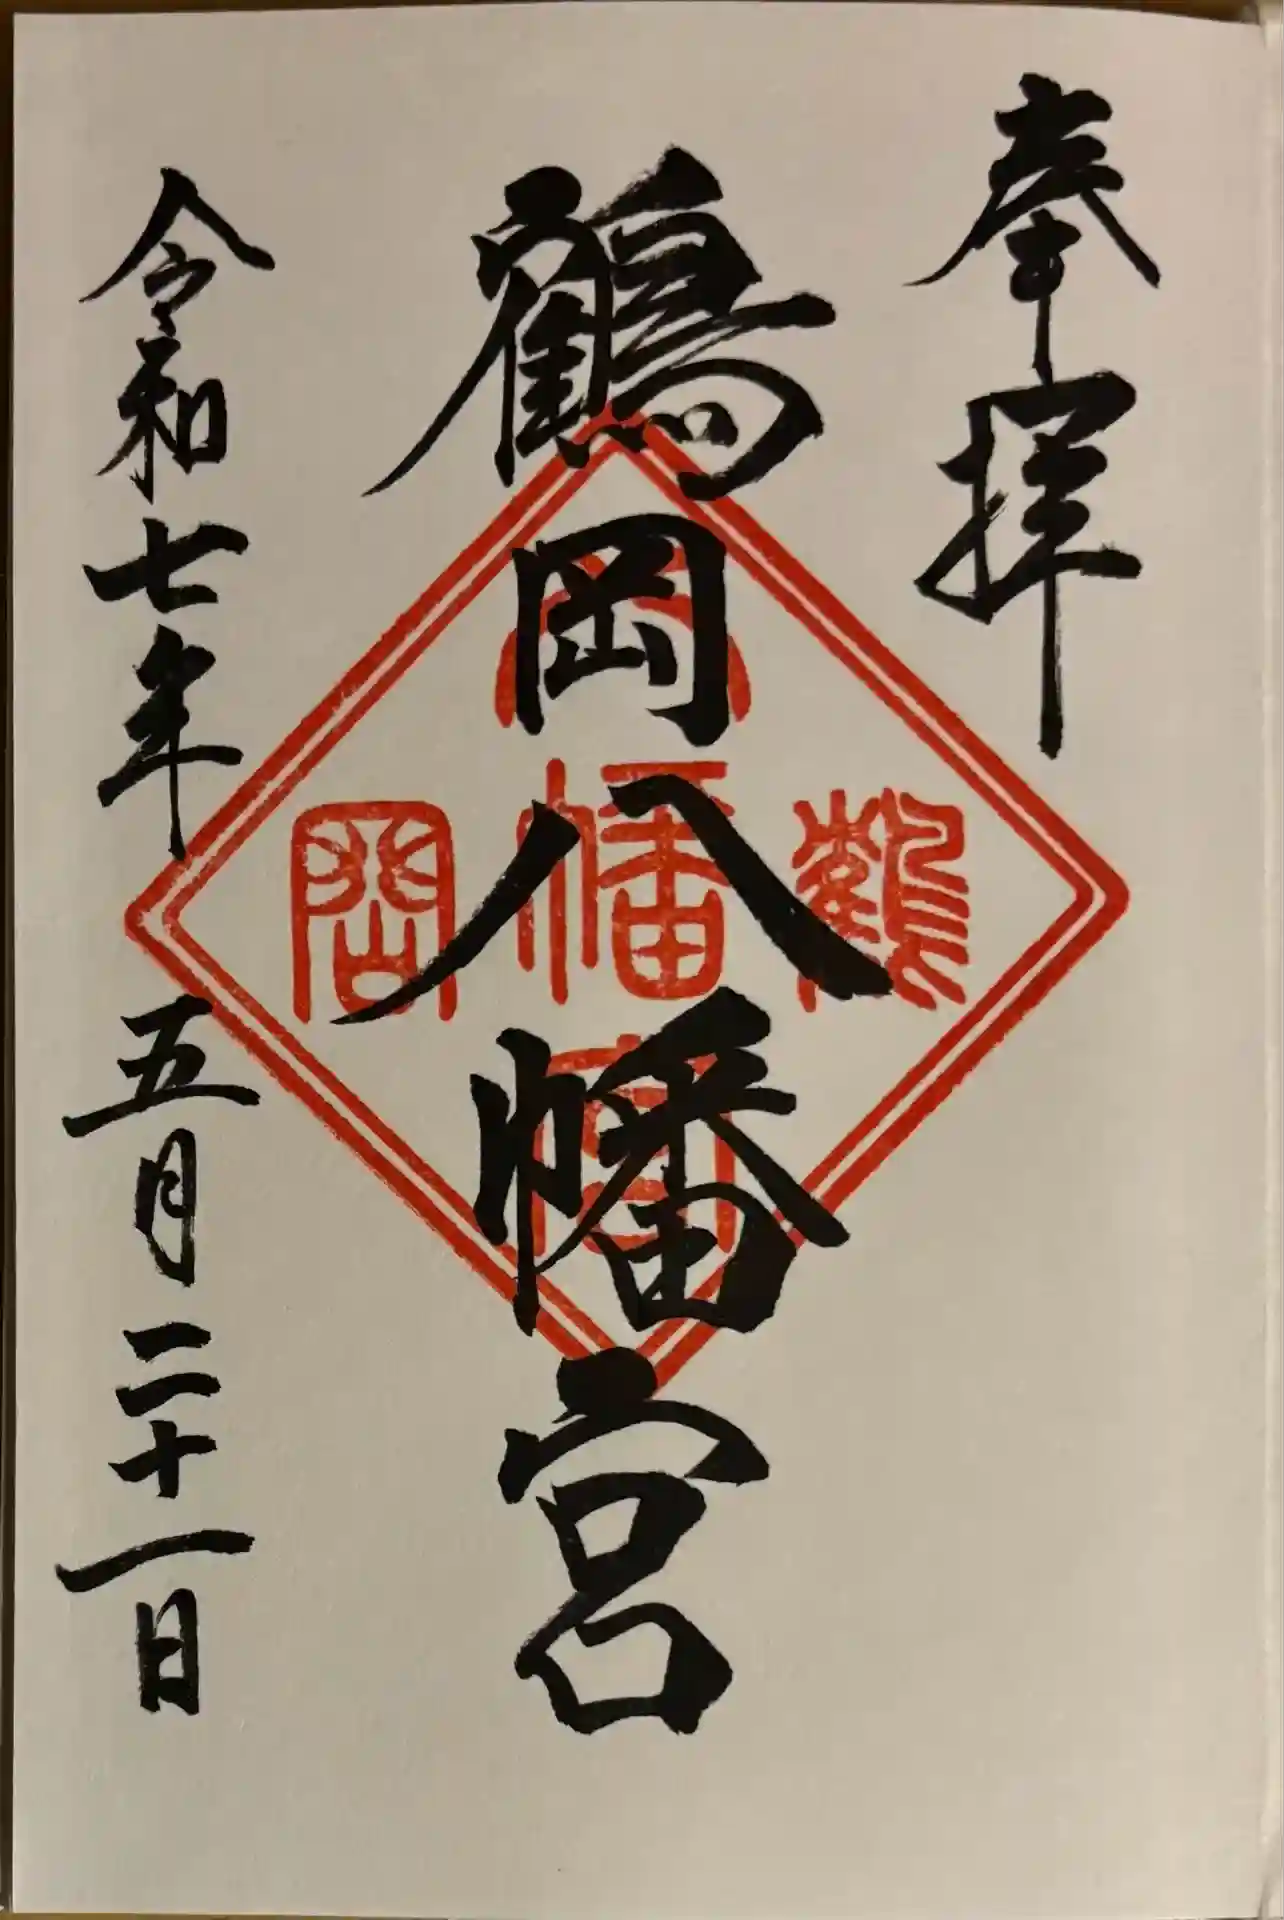 奉拝
鶴岡八幡宮
鶴
八
幡
宮
岡
令和七年五月二十一日